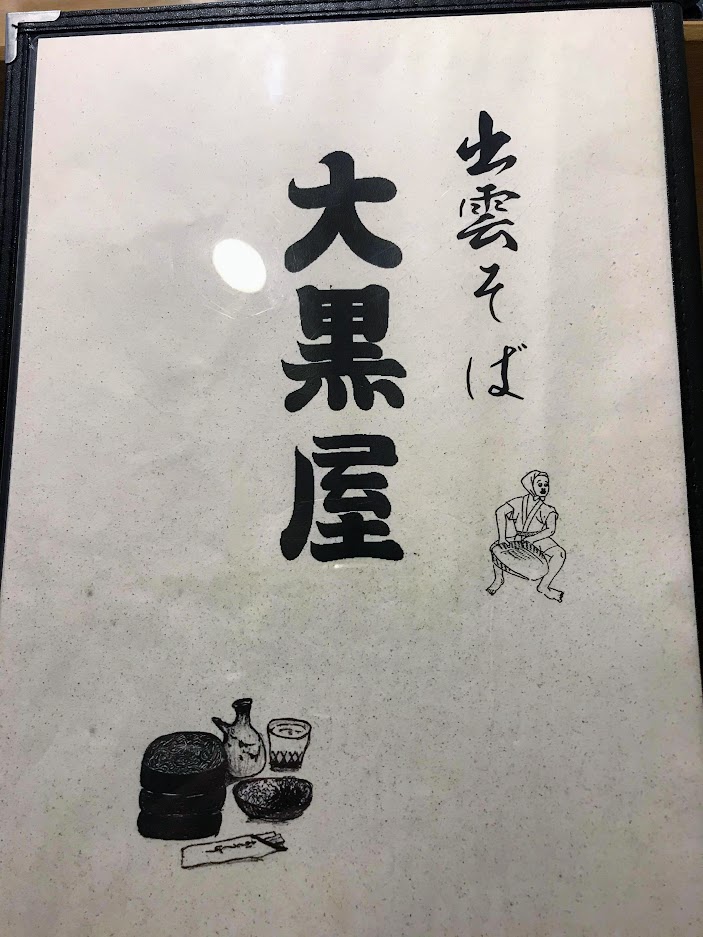 出雲そば
大黒屋